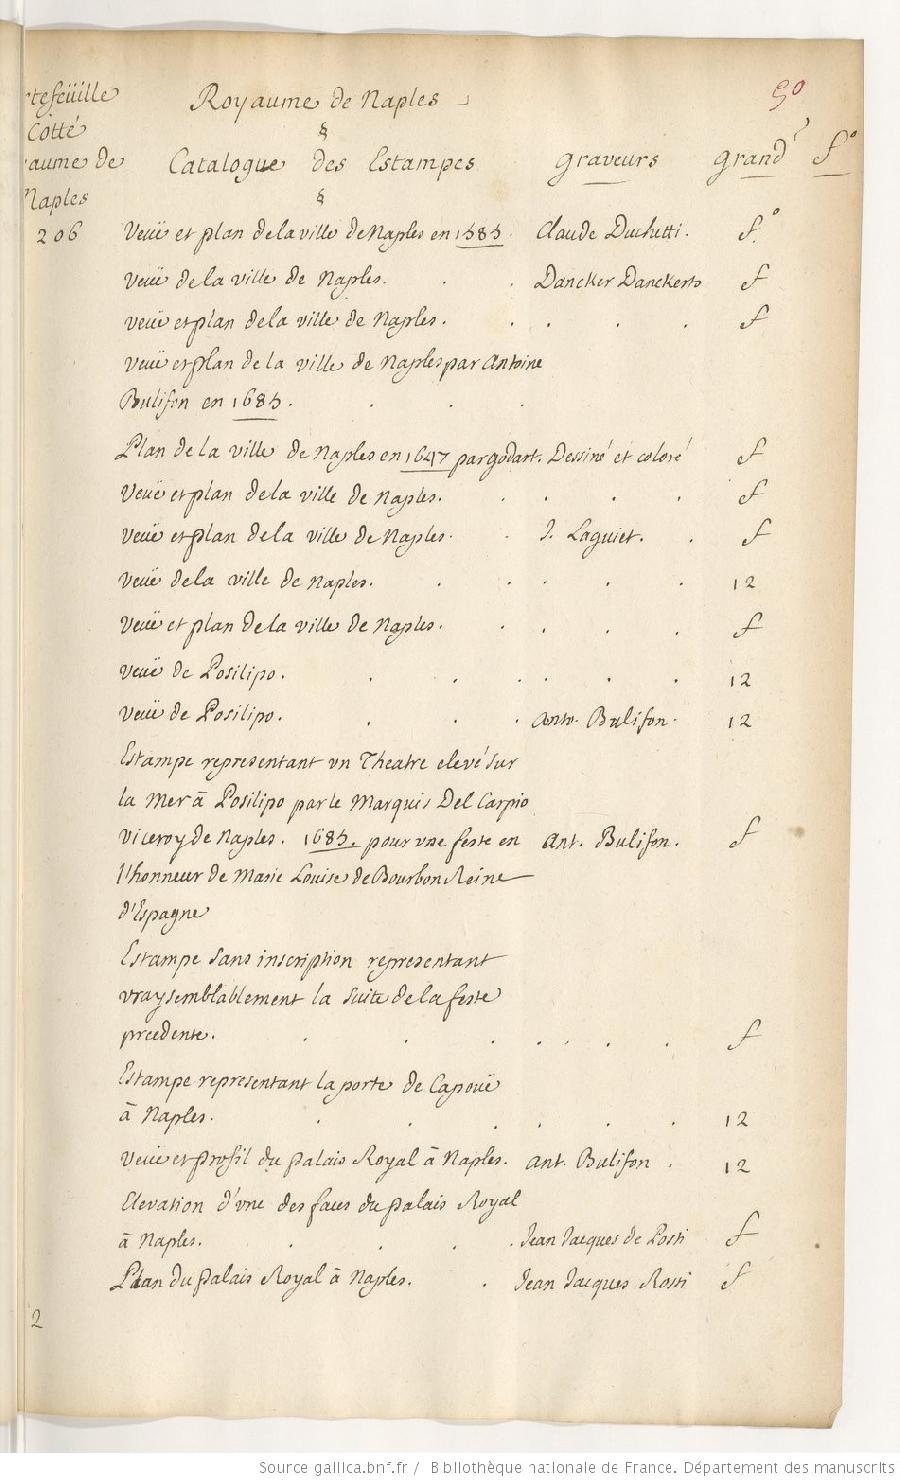 50
rtefeüille
Cotté
aume de
Naples
206
Royaume de Naples
§
Catalogue des Estampes graveurs grandr fo
§
Veuë et plan de la ville de Naples en 1585 Claude Duchetti. fo.
veuë de la ville de Naples. . . Dancker Danckerts f
veuë et plan de la ville de Naples. . . . . f
veuë et plan de la ville de Naples par Antoine
Bulifon en 1685. . . .
Plan de la ville de Naples en 1647 par godart. Dessiné et coloré f
veuë et plan de la ville de Naples. . . . . f
veuë et plan de la ville de Naples. . J. Laguiet. . f
veuë de la ville de Naples. . . . . . 12
Veuë et plan de la ville de Naples. . . . . f
veuë de Posilipo. . . . . . . 12
veuë de Posilipo. . . . anto. Bulifon. 12
Estampe representant vn Theatre elevé sur
la mer à Posilipo par le Marquis Del Carpio
viceroy de Naples. 1685. pour vne feste en Ant. Bulifon. f
l'honneur de Marie Louise de Bourbon Reine
d'Espagne
Estampe sans inscription representant
vraysemblablement la suite de la feste
precedente. . . . . . . . f
Estampe representant la porte de Capouë
à Naples. . . . . . . 12
veuë et profil du palais Royal à Naples. ant. Bulifon . 12
Elevation d'vne des faces du palais Royal
à Naples. . . . . Jean Jacques de Rossi f
Plan du palais Royal à Naples. . Jean Jacques Rossi f
2
Source gallica.bnf.fr / Bibliothèque nationale de France. Département des manuscrits